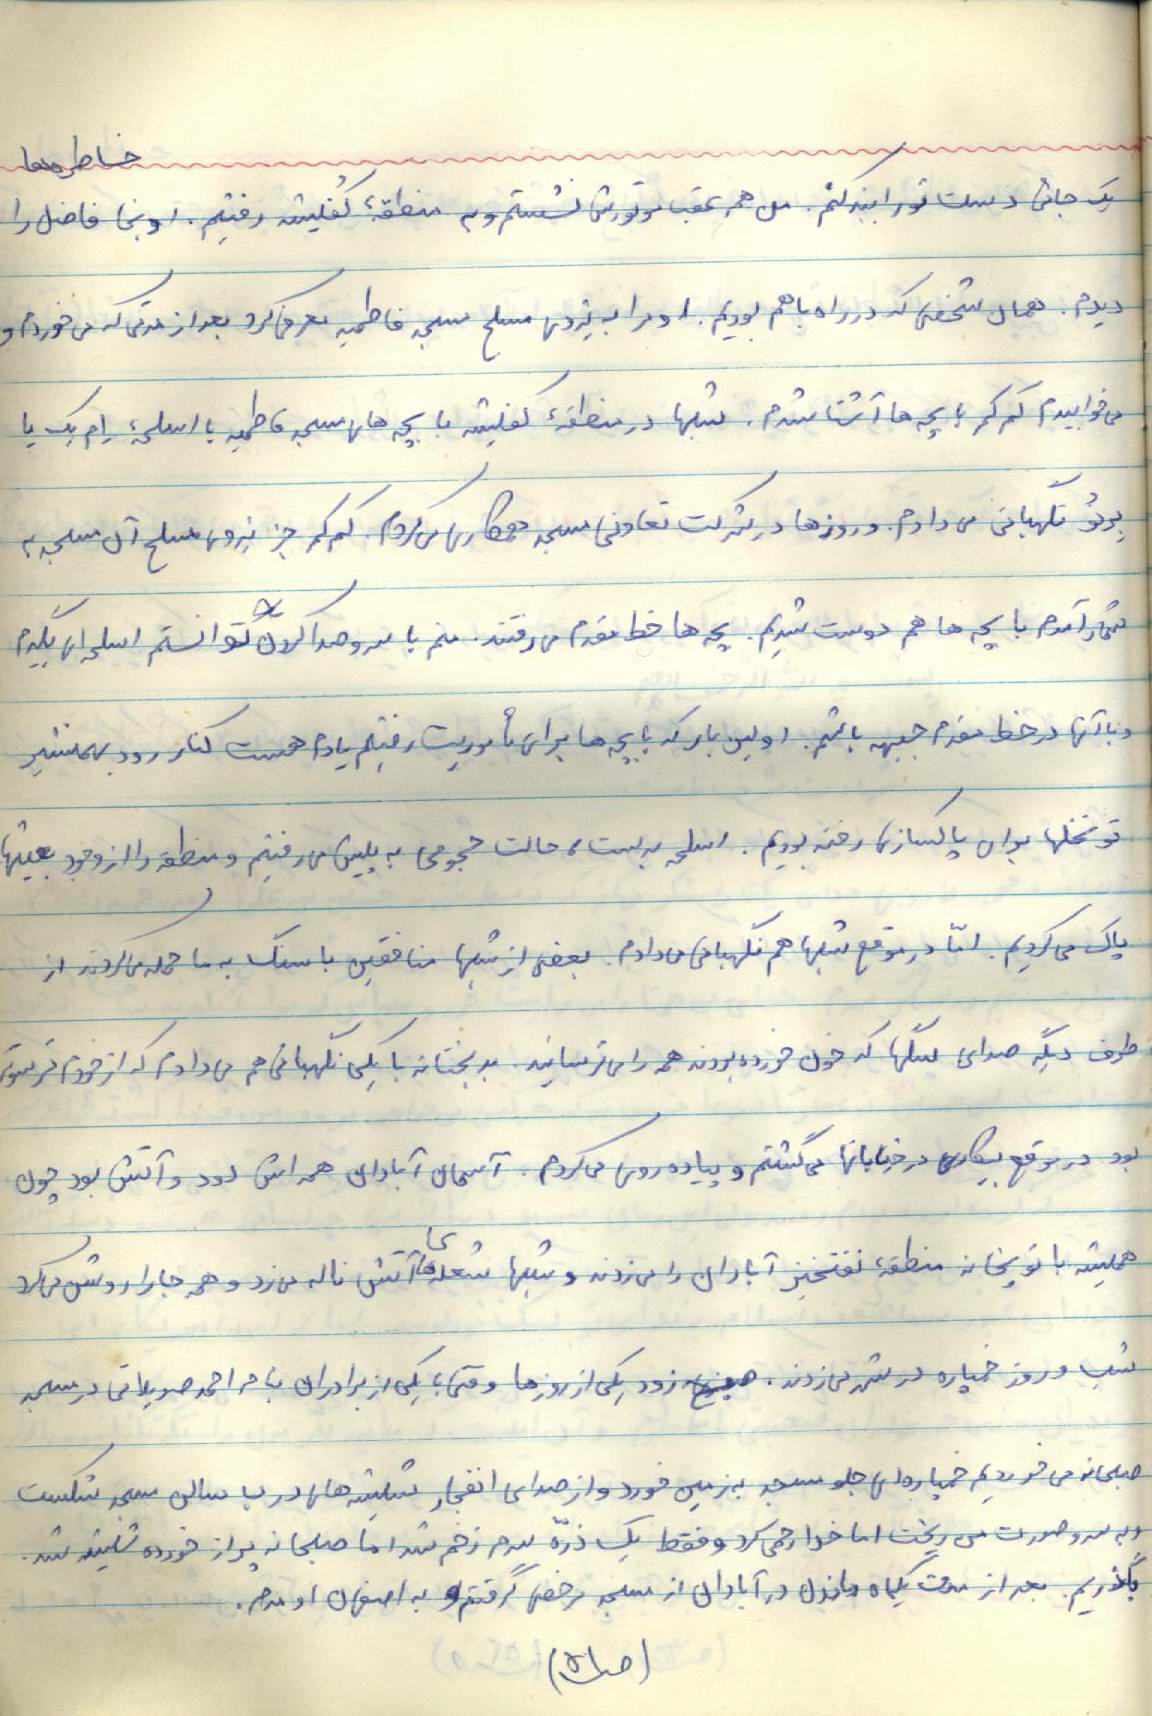 خاطره‌ها
یک جائی دست تو را بند کنم. من هم عقب موتورش نشستم و به منطقهٔ کفیشه رفتیم. اونجا فاضل را
دیدم. همان شخصی که در راه با هم بودیم. او مرا به نیروی مسلح مسجد فاطمیه معرفی کرد بعد از مدتی که می‌خوردم و
می‌خوابیدم کم کم با بچه‌ها آشنا شدم. شبها در منطقهٔ کفیشه با بچه‌های مسجد فاطمیه با اسلحهٔ اِم یک یا
برنو نگهبانی می‌دادم. و روزها در شرکت تعاونی مسجد همکاری می‌کردم. کم کم جز نیروی مسلح آن مسجد به
شمار آمدم با بچه‌ها هم دوست شدیم. بچه‌ها خط مقدم می‌رفتند. منم با سر و صدا کردن توانستم اسلحه‌ای بگیرم
و با آنها در خط مقدم جبهه باشم. اولین بار که با بچه‌ها برای مأموریت رفتیم یادم هست کنار رود بهمنشیر
تو نخلها برای پاکسازی رفته بودیم. اسلحه بدست، حالت هجومی به پیش می‌رفتیم و منطقه را از وجود بعثیها
پاک می‌کردیم. امّا در موقع شبها هم نگهبانی می‌دادم. بعضی از شبها منافقین با سنگ به ما حمله می‌کردند از
طرف دیگه صدای سگها که خون خورده بودند همه را می‌ترساند. بدبختانه با یکی نگهبانی هم می‌دادم که از خودم ترسوتر
بود. در موقع بیکاری در خیابانها می‌گشتم و پیاده روی می‌کردم. آسمان آبادان همه‌اش دود و آتش بود چون
همیشه با توپخانه منطقهٔ نفتخیز آبادان را می‌زدند و شبها شعله‌های آتش ناله می‌زد و همه جا را روشن می‌کرد
شب و روز خمپاره در شهر می‌زدند. صبح زود یکی از روزها وقتی با یکی از برادران بنام احمد صدیقانی در مسجد
صبحانه می‌خوردیم خمپاره‌ای جلو مسجد به زمین خورد و از صدای انفجار شیشه‌های درب سالن مسجد شکست
و به سر و صورت من ریخت اما خدا رحمی کرد و فقط یک ذرّه سرم زخم شد اما صبحانه پر از خورده شیشه شد.
بگذریم. بعد از مدت یکماه ماندن در آبادان از مسجد مرخصی گرفتم و به اصفهان اومدم.